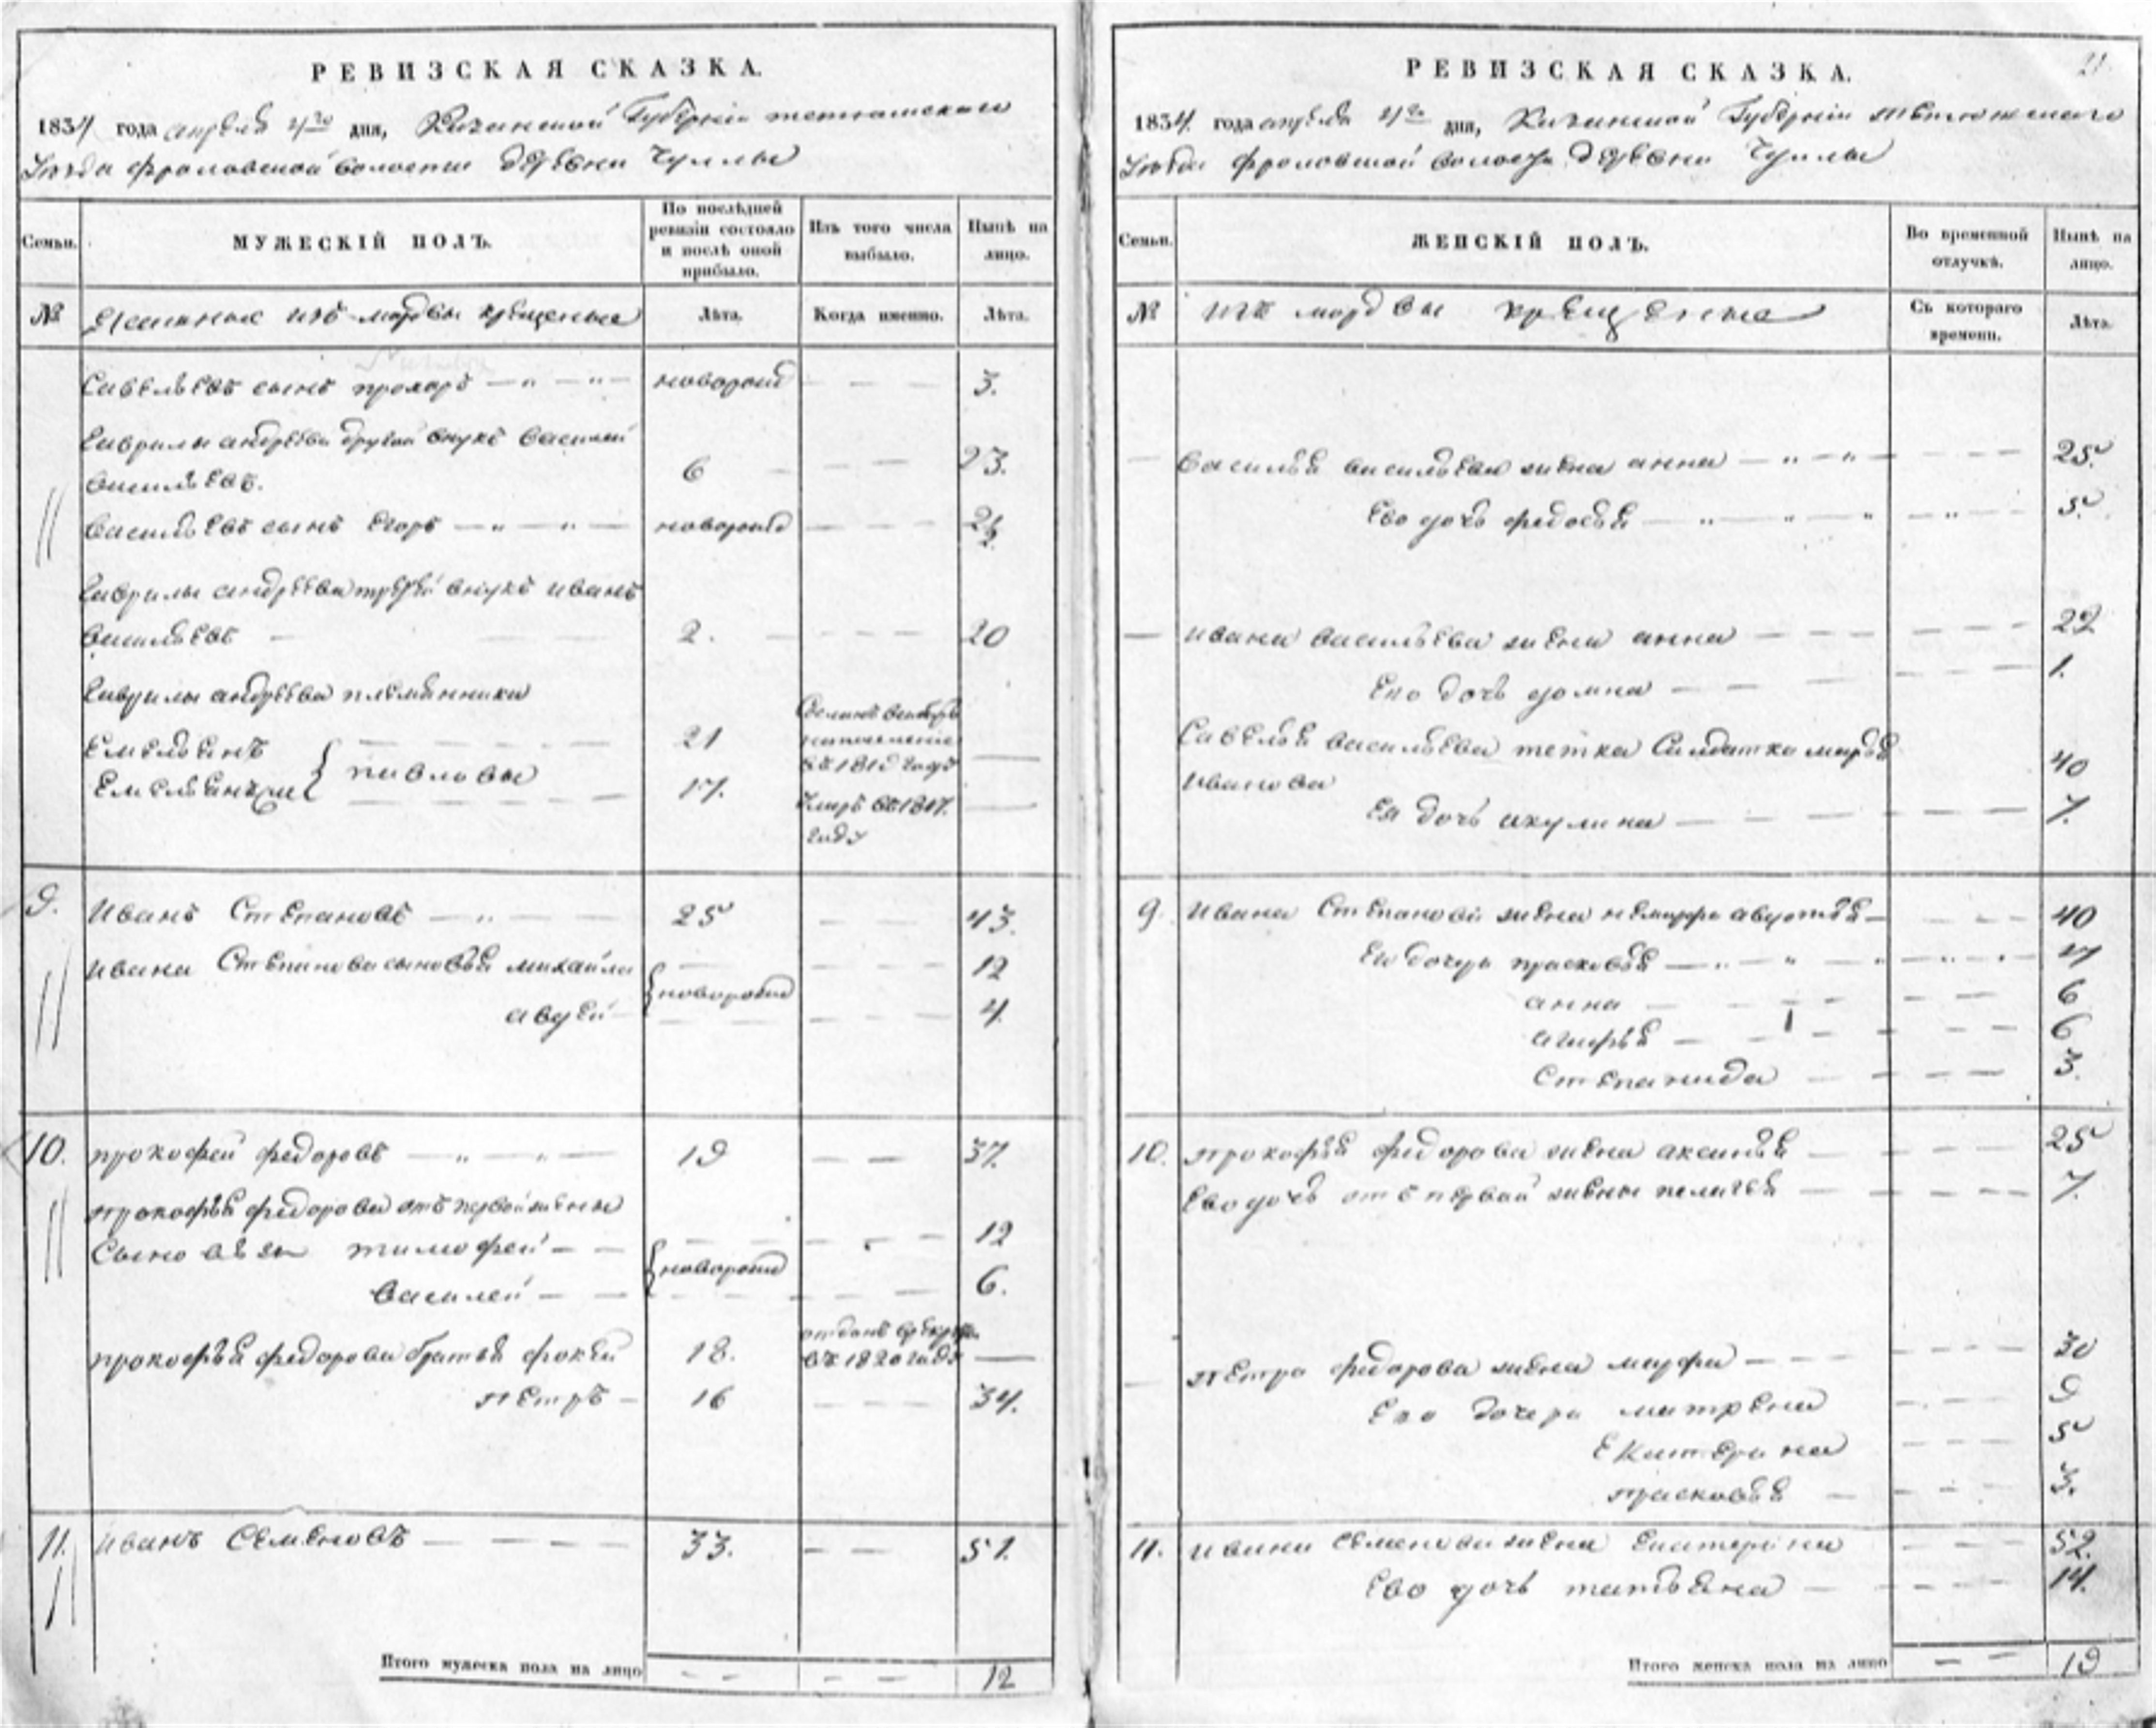 РЕВИЗСКАЯ СКАЗКА.
1834 года апреля 4го дня, Казанской Губернiи тетюшскаго
Уезда фроловской волости деревни Чуллы
Семьи.
МУЖЕСКIЙ ПОЛЪ.
По послѣдней ревизiи состояло и послѣ оной прибыло.
Изъ того числа выбыло.
Нынѣ на лицо.
№
изъ мордвы крещеные
Лѣта.
Когда именно.
Лѣта.
Савельевъ сынъ прохоръ — " — " — новорож — — — 3.
Гаврилы андреева другой внукъ василей
васильевъ. 6 — — — 23.
васильевъ сынъ Егоръ — " — " — новорож — — — 2½
Гаврилы андреева третей внукъ иванъ
васильевъ — 2. — — — 20
Гаврилы андреева племянники
Емельянъ 21
Емельянъ же } павловы 17.
въ 181 году
умеръ въ 1817.
году
9. Иванъ Степановъ — " — 25 — — 43.
ивана Степанова сыновья михайла 12
{новорож
авдей 4.
10. прокофей федоровъ — " — " — 19 — — 37.
прокофья федорова отъ первой жены
Сыновья тимофей — — 12
{новорож
василей — — 6.
прокофья федорова братья фокей 18. отданъ в рекруты
въ 1820 году —
петръ — 16 — — — 34.
11. иванъ Семеновъ — — — — 33. — — 51.
Итого мужеска пола на лицо — — — — 12
РЕВИЗСКАЯ СКАЗКА.
21.
1834 года апреля 4го дня, Казанской Губернiи тетюшскаго
Уезда фроловской волости деревни Чуллы
Семьи.
ЖЕНСКIЙ ПОЛЪ.
Во временной отлучкѣ.
Нынѣ на лицо.
№
изъ мордвы крещеные
Съ котораго времени.
Лѣта.
— василья васильева жена анна — " — " — — — — 25.
Ево дочь федосья — " — " — " — " — 5.
— ивана васильева жена анна — — — — — 22
Ево дочь домна — — — — — 1.
Савелья васильева тетка Салдатка марья
иванова 40
Ея дочь акулина — — — — 7.
9. ивана Степанова жена — — — 40
Ево дочери прасковья — " — " — " — " — 17
анна — — — — 6
агафья — — — — 6
Степанида — — — — 3.
10. прокофья федорова жена аксинья — — — — 25
Ево дочь отъ первой жены пелагея — — — — 7.
— петра федорова жена марфа — — — — 30
Ево дочери матрена — — — 9
Екатерина — — — 5
прасковья — — — — 3.
11. ивана Семенова жена Екатерина — — — 52.
Ево дочь татьяна — — — — 14.
Итого женска пола на лицо — — 19